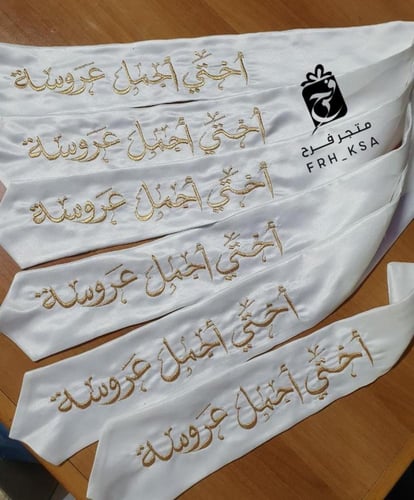 أختي أجمل عروسة
أختي أجمل عروسة
أختي أجمل عروسة
أختي أجمل عروسة
أختي أجمل عروسة
أختي أجمل عروسة
متجر فرح
FRH_KSA